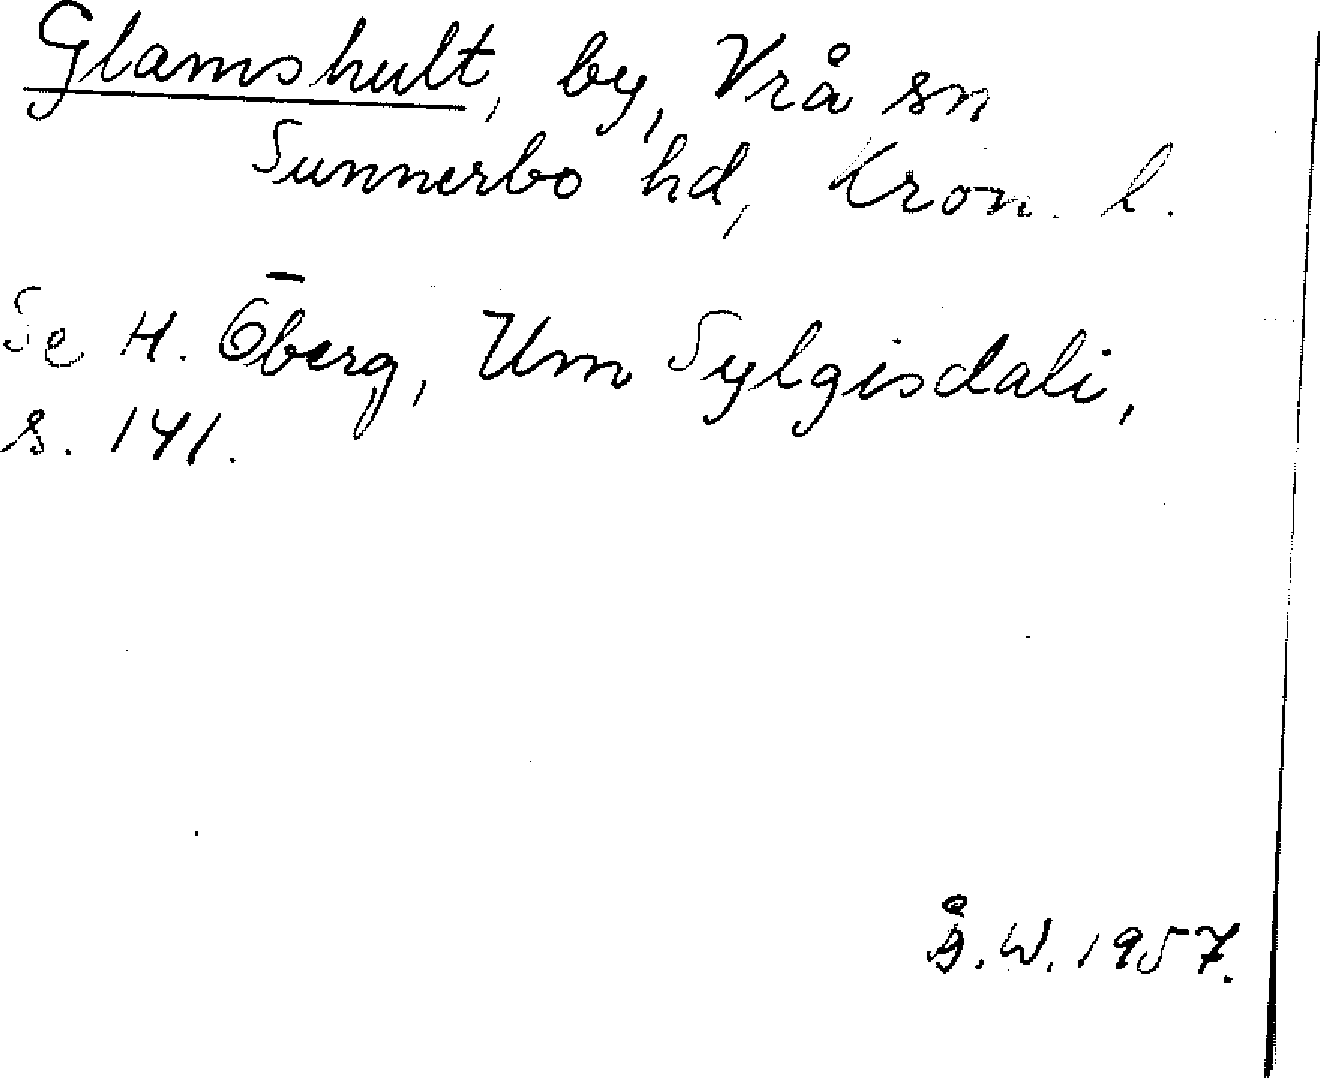 Glamshult, by, Vrå sn
Sunnerbo hd, Kron. l.
Se H. Öberg, Um Sylgisdali,
s. 141.
Å.W. 1957.